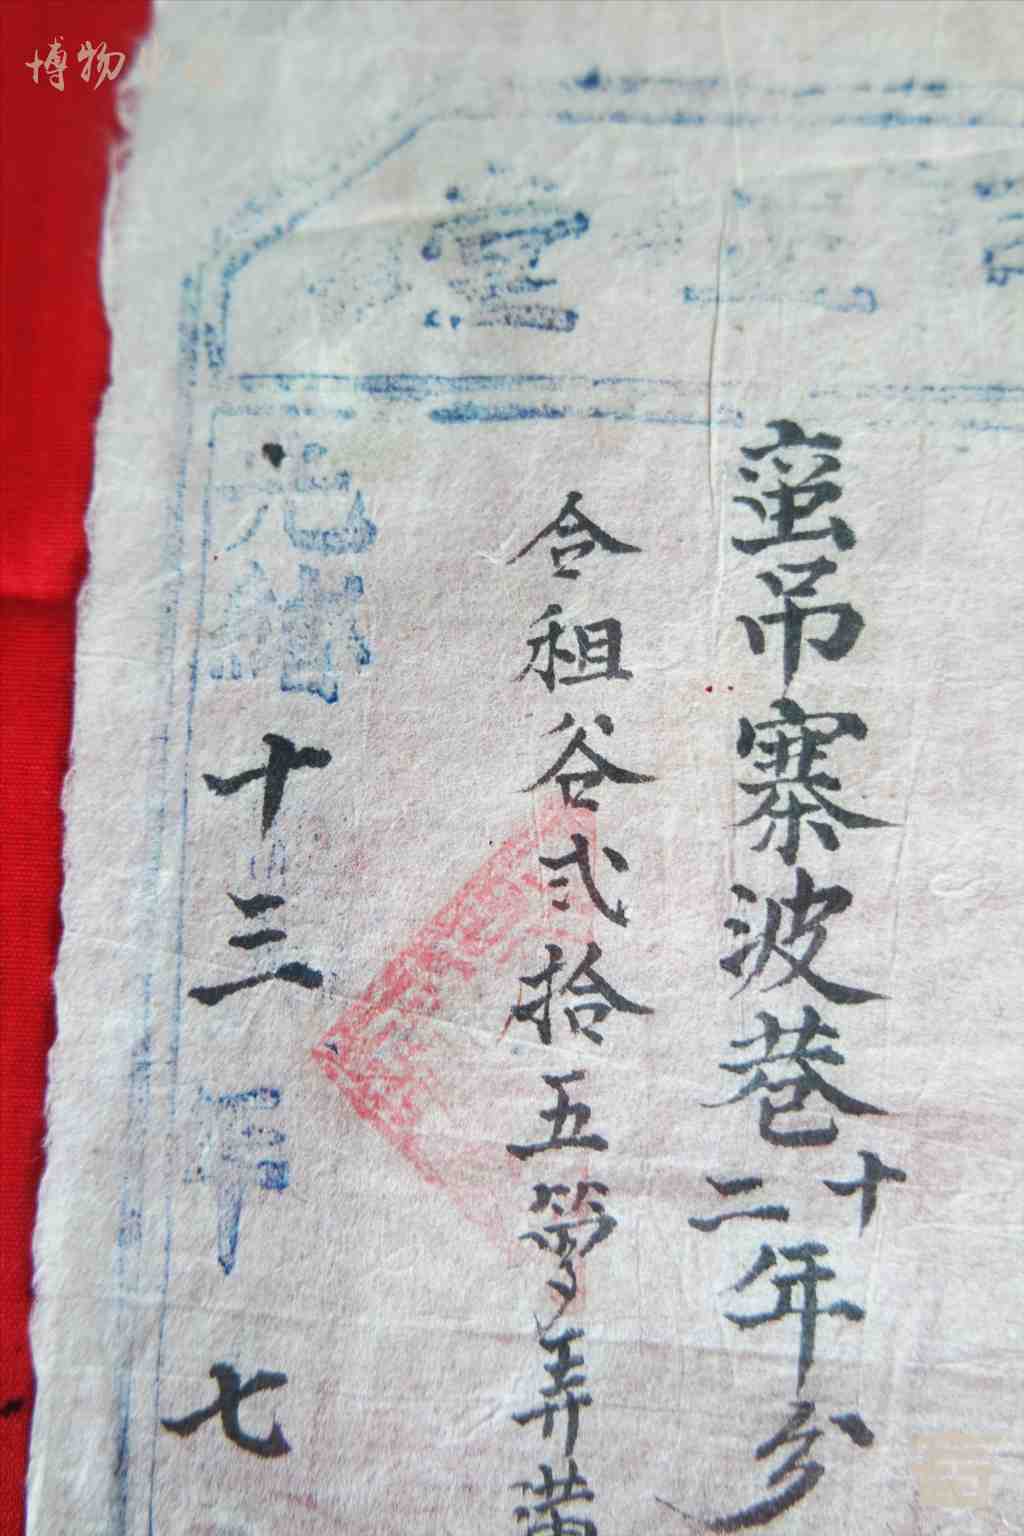 博物
堂
蛮吊寨波巷十二年分
合租谷弍拾五箩弄满
光緒十三年七